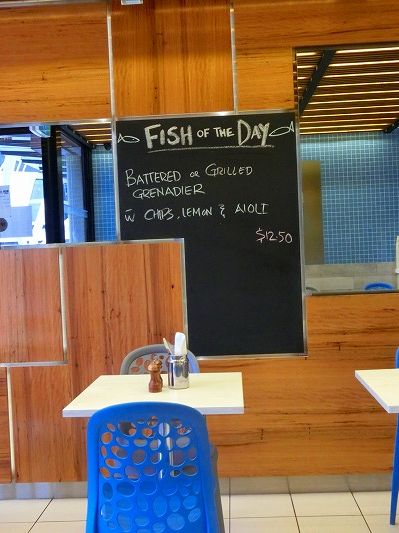 FISH OF THE DAY
BATTERED OR GRILLED
GRENADIER
W CHIPS, LEMON & AIOLI
$12.50